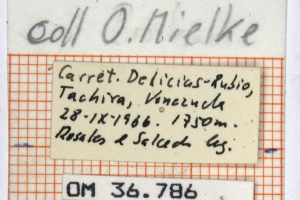 coll O. Mielke
Carret. Delicias-Rubio,
Tachira, Venezuela
28-IX-1966. 1750m.
Rosales e Salcedo leg.
OM 36.786